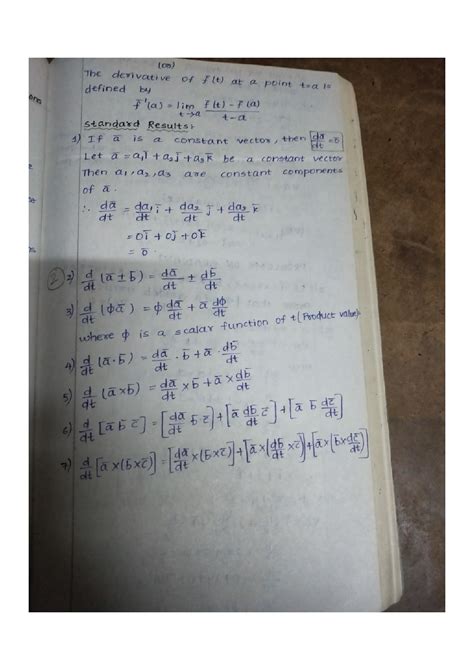 (or)
The derivative of f̄(t) at a point t=a is
defined by
f̄'(a) = lim t→a f̄(t) - f̄(a) / t-a
Standard Results:
1) If ā is a constant vector, then dā/dt = 0
Let ā = a₁ī + a₂j̄ + a₃k̄ be a constant vector
Then a₁, a₂, a₃ are constant components
of ā.
∴ dā/dt = da₁/dt ī + da₂/dt j̄ + da₃/dt k̄
= 0ī + 0j̄ + 0k̄
= ō.
2) d/dt (ā ± b̄) = dā/dt ± db̄/dt
3) d/dt (ϕā) = ϕ dā/dt + ā dϕ/dt
where ϕ is a scalar function of t (Product value)
4) d/dt (ā · b̄) = dā/dt · b̄ + ā · db̄/dt
5) d/dt (ā × b̄) = dā/dt × b̄ + ā × db̄/dt
6) d/dt [ā b̄ c̄] = [dā/dt b̄ c̄] + [ā db̄/dt c̄] + [ā b̄ dc̄/dt]
7) d/dt [ā × (b̄ × c̄)] = [dā/dt × (b̄ × c̄)] + [ā × (db̄/dt × c̄)] + [ā × (b̄ × dc̄/dt)]